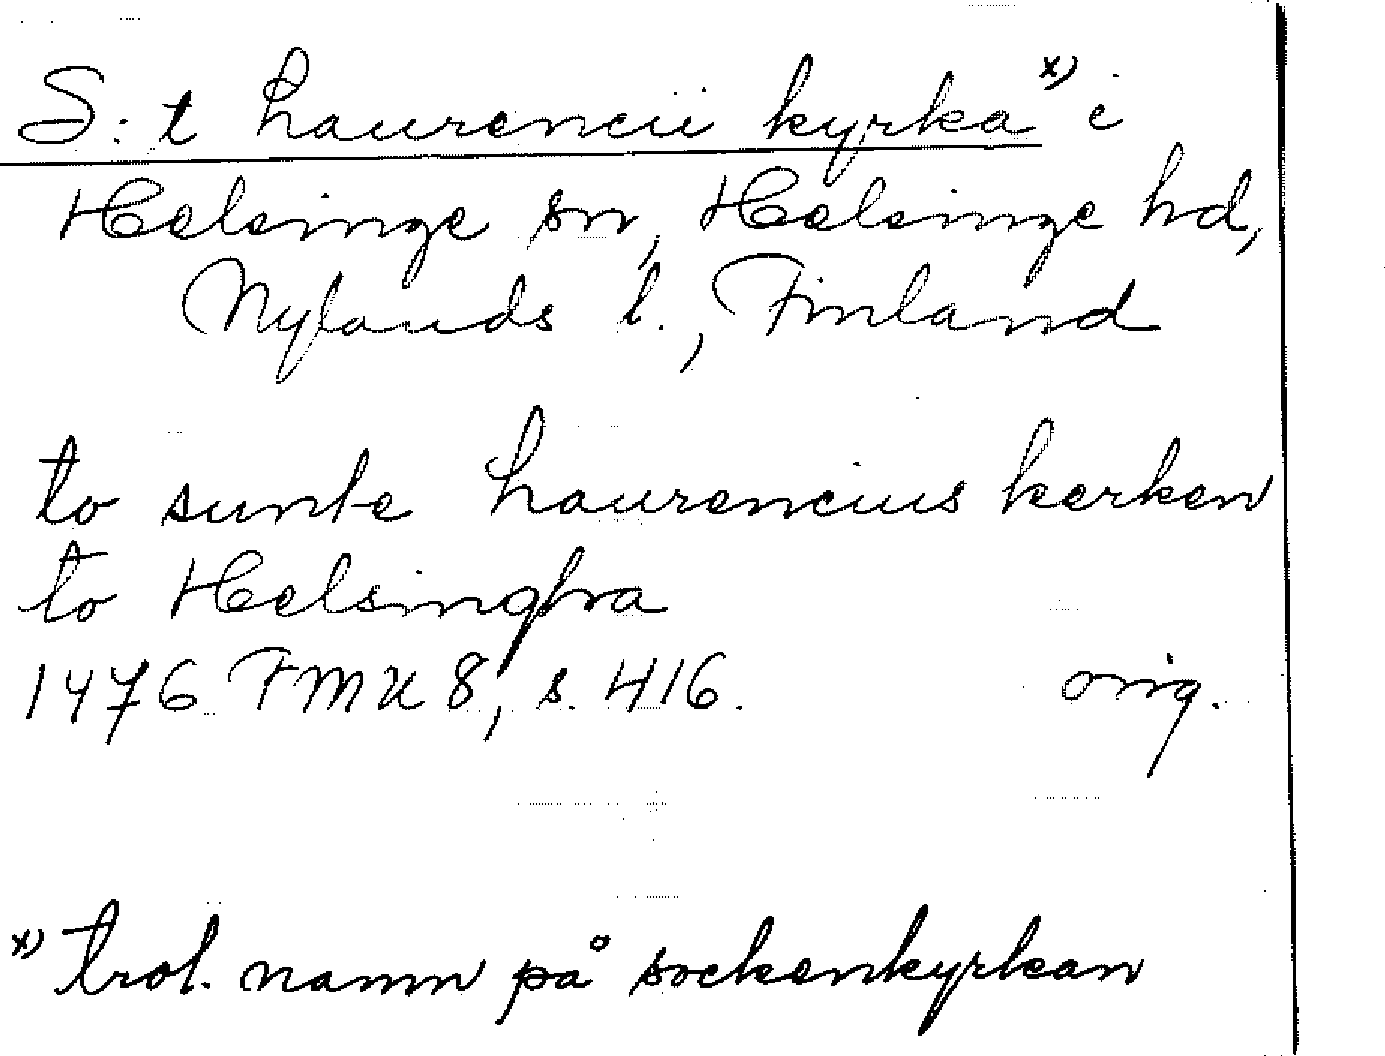 S:t Laurencii kyrka x) i
Helsinge sn, Helsinge hd,
Nylands l., Finland
to sunte Laurencius kerken
to Helsingfra
1476 FMU 8, s. 416. orig.
x) trol. namn på sockenkyrkan